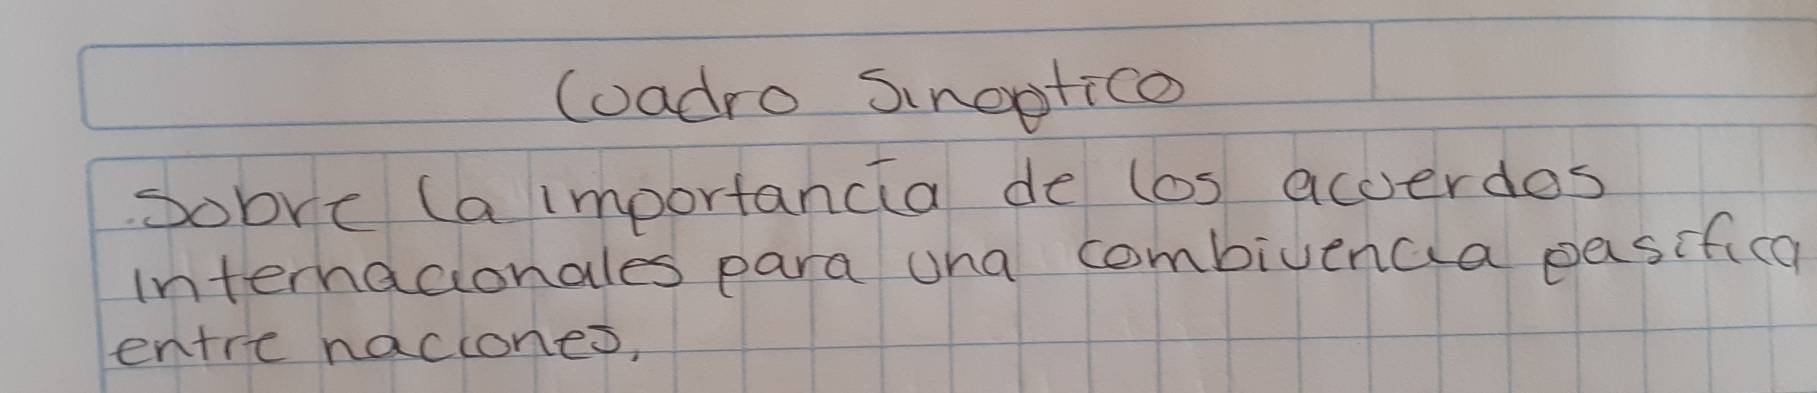 Cuadro Sinoptico
Sobre la importancia de los acuerdos
internacionales para una combivencia pasifica
entre naciones.